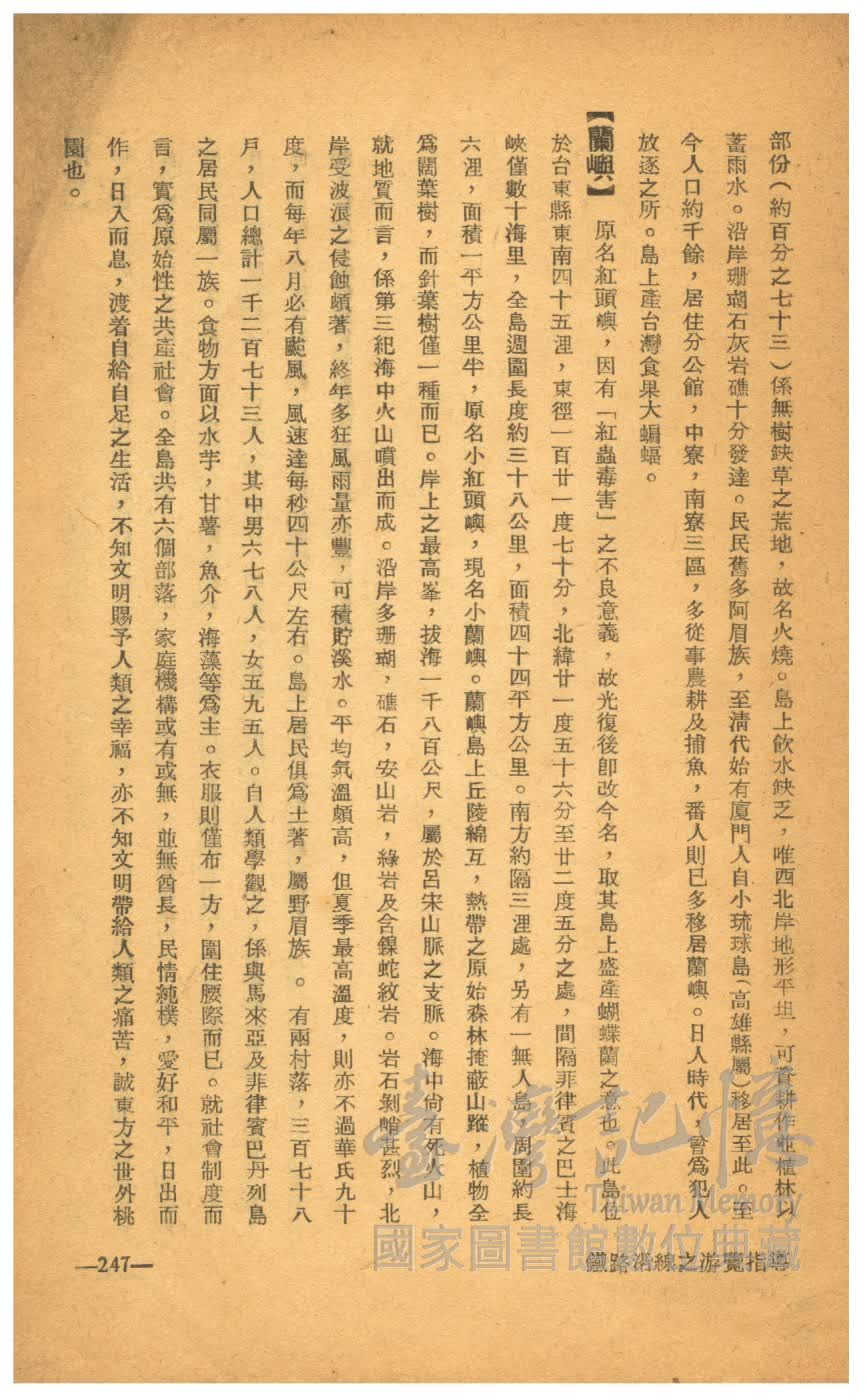 部份(約百分之七十三)係無樹缺草之荒地,故名火燒。島上飲水缺乏,唯西北岸地形平坦,可資耕作並植林以
蓄雨水。沿岸珊瑚石灰岩礁十分發達。民民舊多阿眉族,至淸代始有廈門人自小琉球島(高雄縣屬)移居至此。至
今人口約千餘,居住分公館,中寮,南寮三區,多從事農耕及捕魚,番人則已多移居蘭嶼。日人時代,曾爲犯人
放逐之所。島上產台灣食果大蝙蝠。
【蘭嶼】 原名紅頭嶼,因有「紅蟲毒害」之不良意義,故光復後卽改今名,取其島上盛產蝴蝶蘭之意也。此島位
於台東縣東南四十五浬,東徑一百廿一度七十分,北緯廿一度五十六分至廿二度五分之處,間隔菲律賓之巴士海
峽僅數十海里,全島週圍長度約三十八公里,面積四十四平方公里。南方約隔三浬處,另有一無人島,周圍約長
六浬,面積一平方公里半,原名小紅頭嶼,現名小蘭嶼。蘭嶼島上丘陵綿互,熱帶之原始森林掩蔽山蹤,植物全
爲闊葉樹,而針葉樹僅一種而已。岸上之最高峯,拔海一千八百公尺,屬於呂宋山脈之支脈。海中尙有死火山,
就地質而言,係第三紀海中火山噴出而成。沿岸多珊瑚,礁石,安山岩,綠岩及含鎳蛇紋岩。岩石剝峭甚烈,北
岸受波浪之侵蝕頗著,終年多狂風雨量亦豐,可積貯溪水。平均氣溫頗高,但夏季最高溫度,則亦不過華氏九十
度,而每年八月必有颱風,風速達每秒四十公尺左右。島上居民俱爲土著,屬野眉族。有兩村落,三百七十八
戶,人口總計一千二百七十三人,其中男六七八人,女五九五人。自人類學觀之,係與馬來亞及菲律賓巴丹列島
之居民同屬一族。食物方面以水芋,甘薯,魚介,海藻等爲主。衣服則僅布一方,圍住腰際而已。就社會制度而
言,實爲原始性之共產社會。全島共有六個部落,家庭機構或有或無,並無酋長,民情純樸,愛好和平,日出而
作,日入而息,渡着自給自足之生活,不知文明賜予人類之幸福,亦不知文明帶給人類之痛苦,誠東方之世外桃
園也。
鐵路沿線之游覽指導
—247—
臺灣記憶
Taiwan Memory
國家圖書館數位典藏